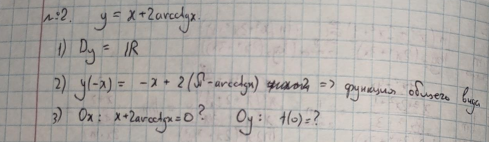 №2. y = x+2arcctgx.
1) Dy = ℝ
2) y(-x) = -x + 2(π-arcctgx) => функция общего вида
3) Ox: x+2arcctgx=0? Oy: f(0)=?